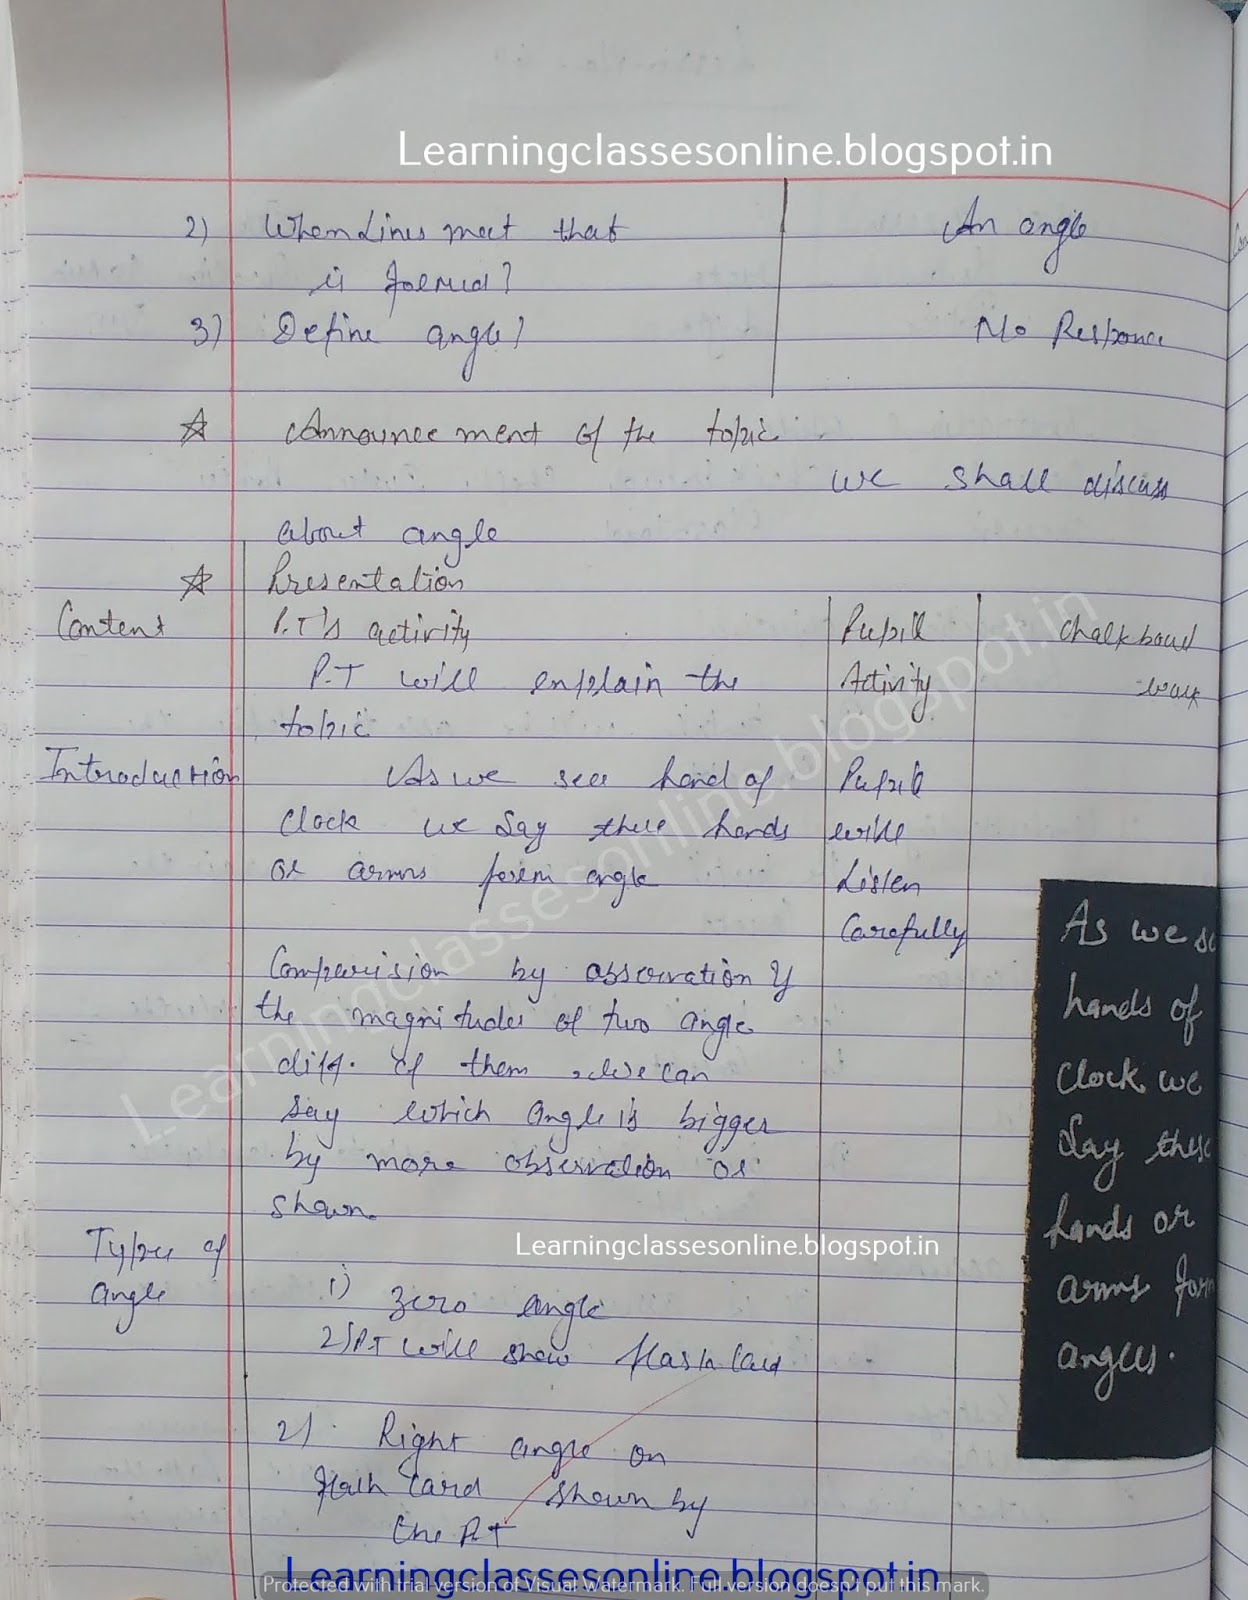 Learningclassesonline.blogspot.in
2) When Lines meet that An angle
is formed?
3) Define angle? No Responce
☆ Announcement of the topic
we shall discuss
about angle
☆ Presentation
Content P.T's activity Pupil Chalkboard
P.T will explain the Activity work
topic
Introduction As we see hand of Pupil
clock we say these hands will
or arms form angle Listen
Carefully
Comparision by observation of
the magnitudes of two angle
diff. of them, we can
say which angle is bigger
by more observation or
shown.
Types of
angle
1) Zero angle
2) P.T will show flash Card
2) Right angle on
flash Card shown by
the P.T
As we se
hands of
clock we
say these
hands or
arms form
angles.
Learningclassesonline.blogspot.in
Learningclassesonline.blogspot.in
Learningclassesonline.blogspot.in
Protected with trial version of Visual Watermark. Full version doesn't put this mark.